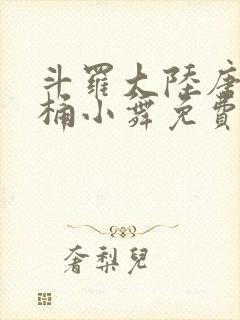 斗羅大陸唐
桶小舞免費
奢梨兒